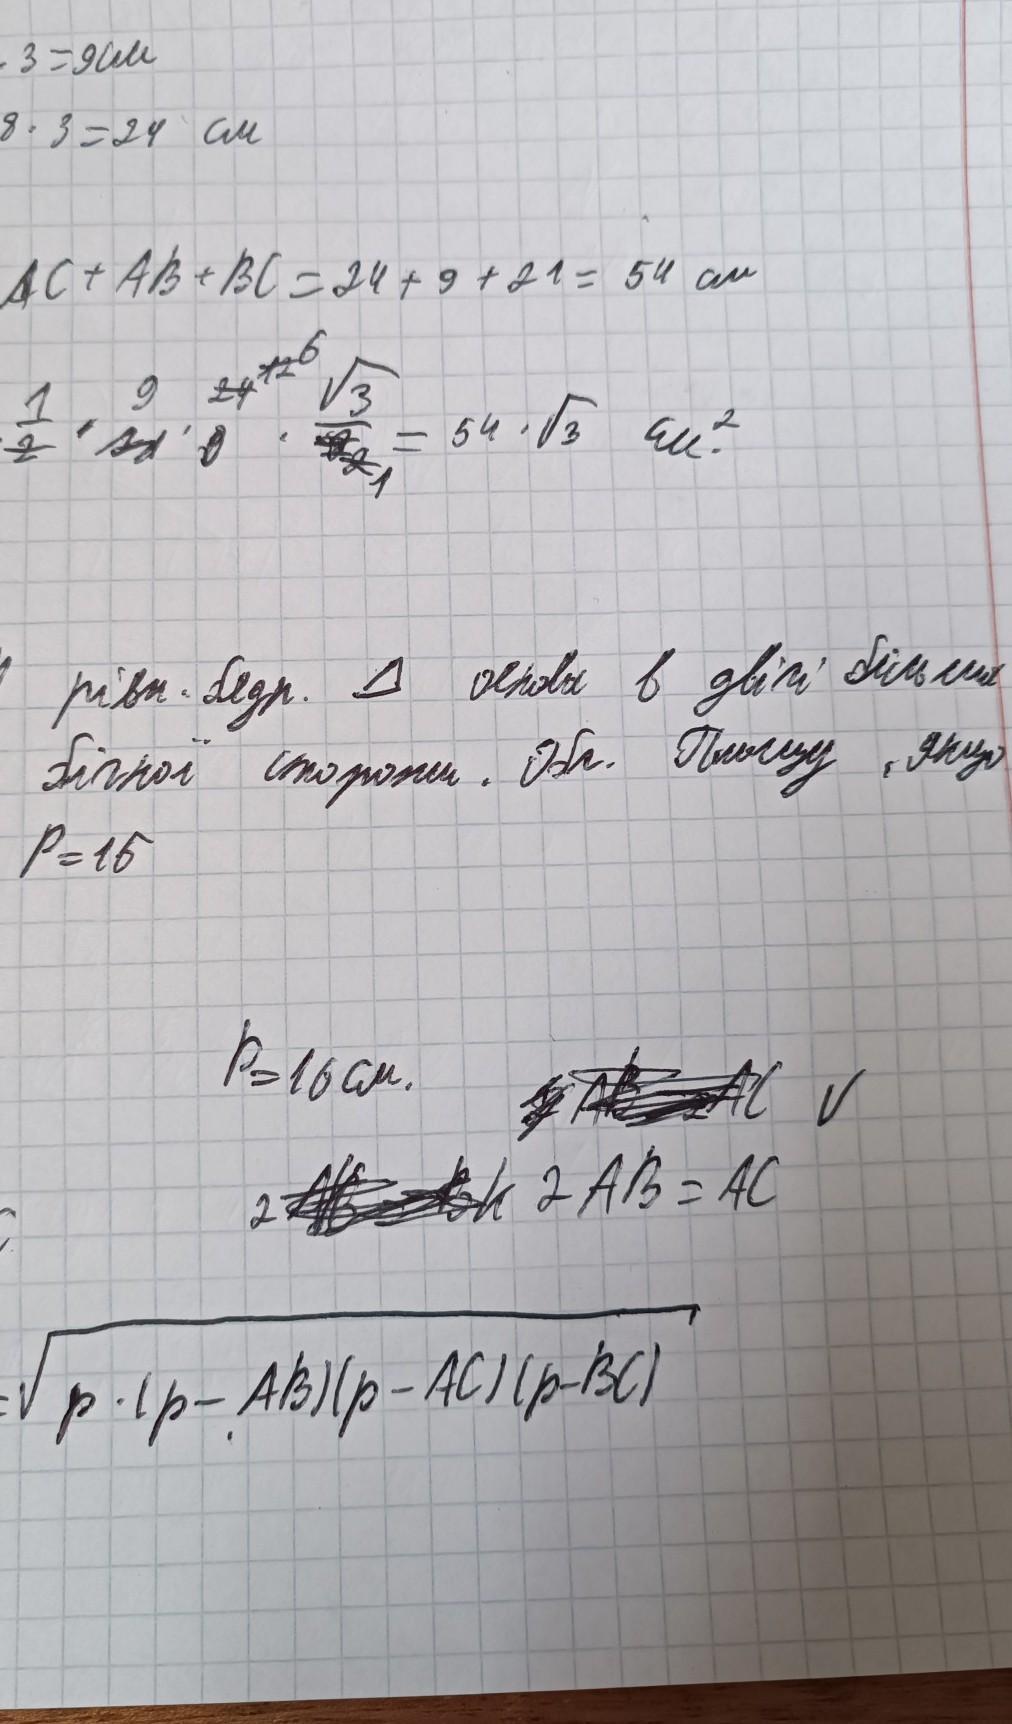 · 3 = 9 см
8 · 3 = 24 см
AC + AB + BC = 24 + 9 + 21 = 54 см
1/2 · 9 · 24 12 6 · √3/2 1 = 54 · √3 см².
рівн. бедр. Δ основа в двічі більша
бічної сторони. Обч. Площу, якщо
P = 16
P = 16 см. AC √
2 2 AB = AC
= √p · (p – AB)(p – AC)(p – BC)